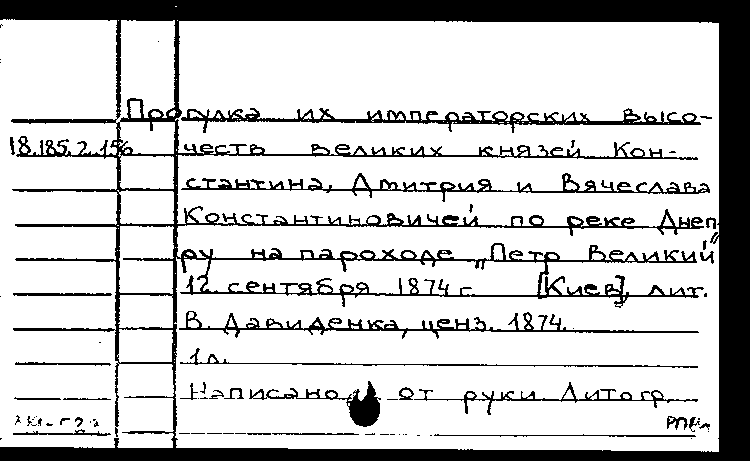 Прогулка их императорских высо-
18.185.2.156 честв великих князей Кон-
стантина, Дмитрия и Вячеслава
Константиновичей по реке Днеп-
ру на пароходе „Петр Великий"
12 сентября 1874 г. [Киев], лит.
В. Давиденка, ценз. 1874.
1 л.
Написано от руки. Литогр.